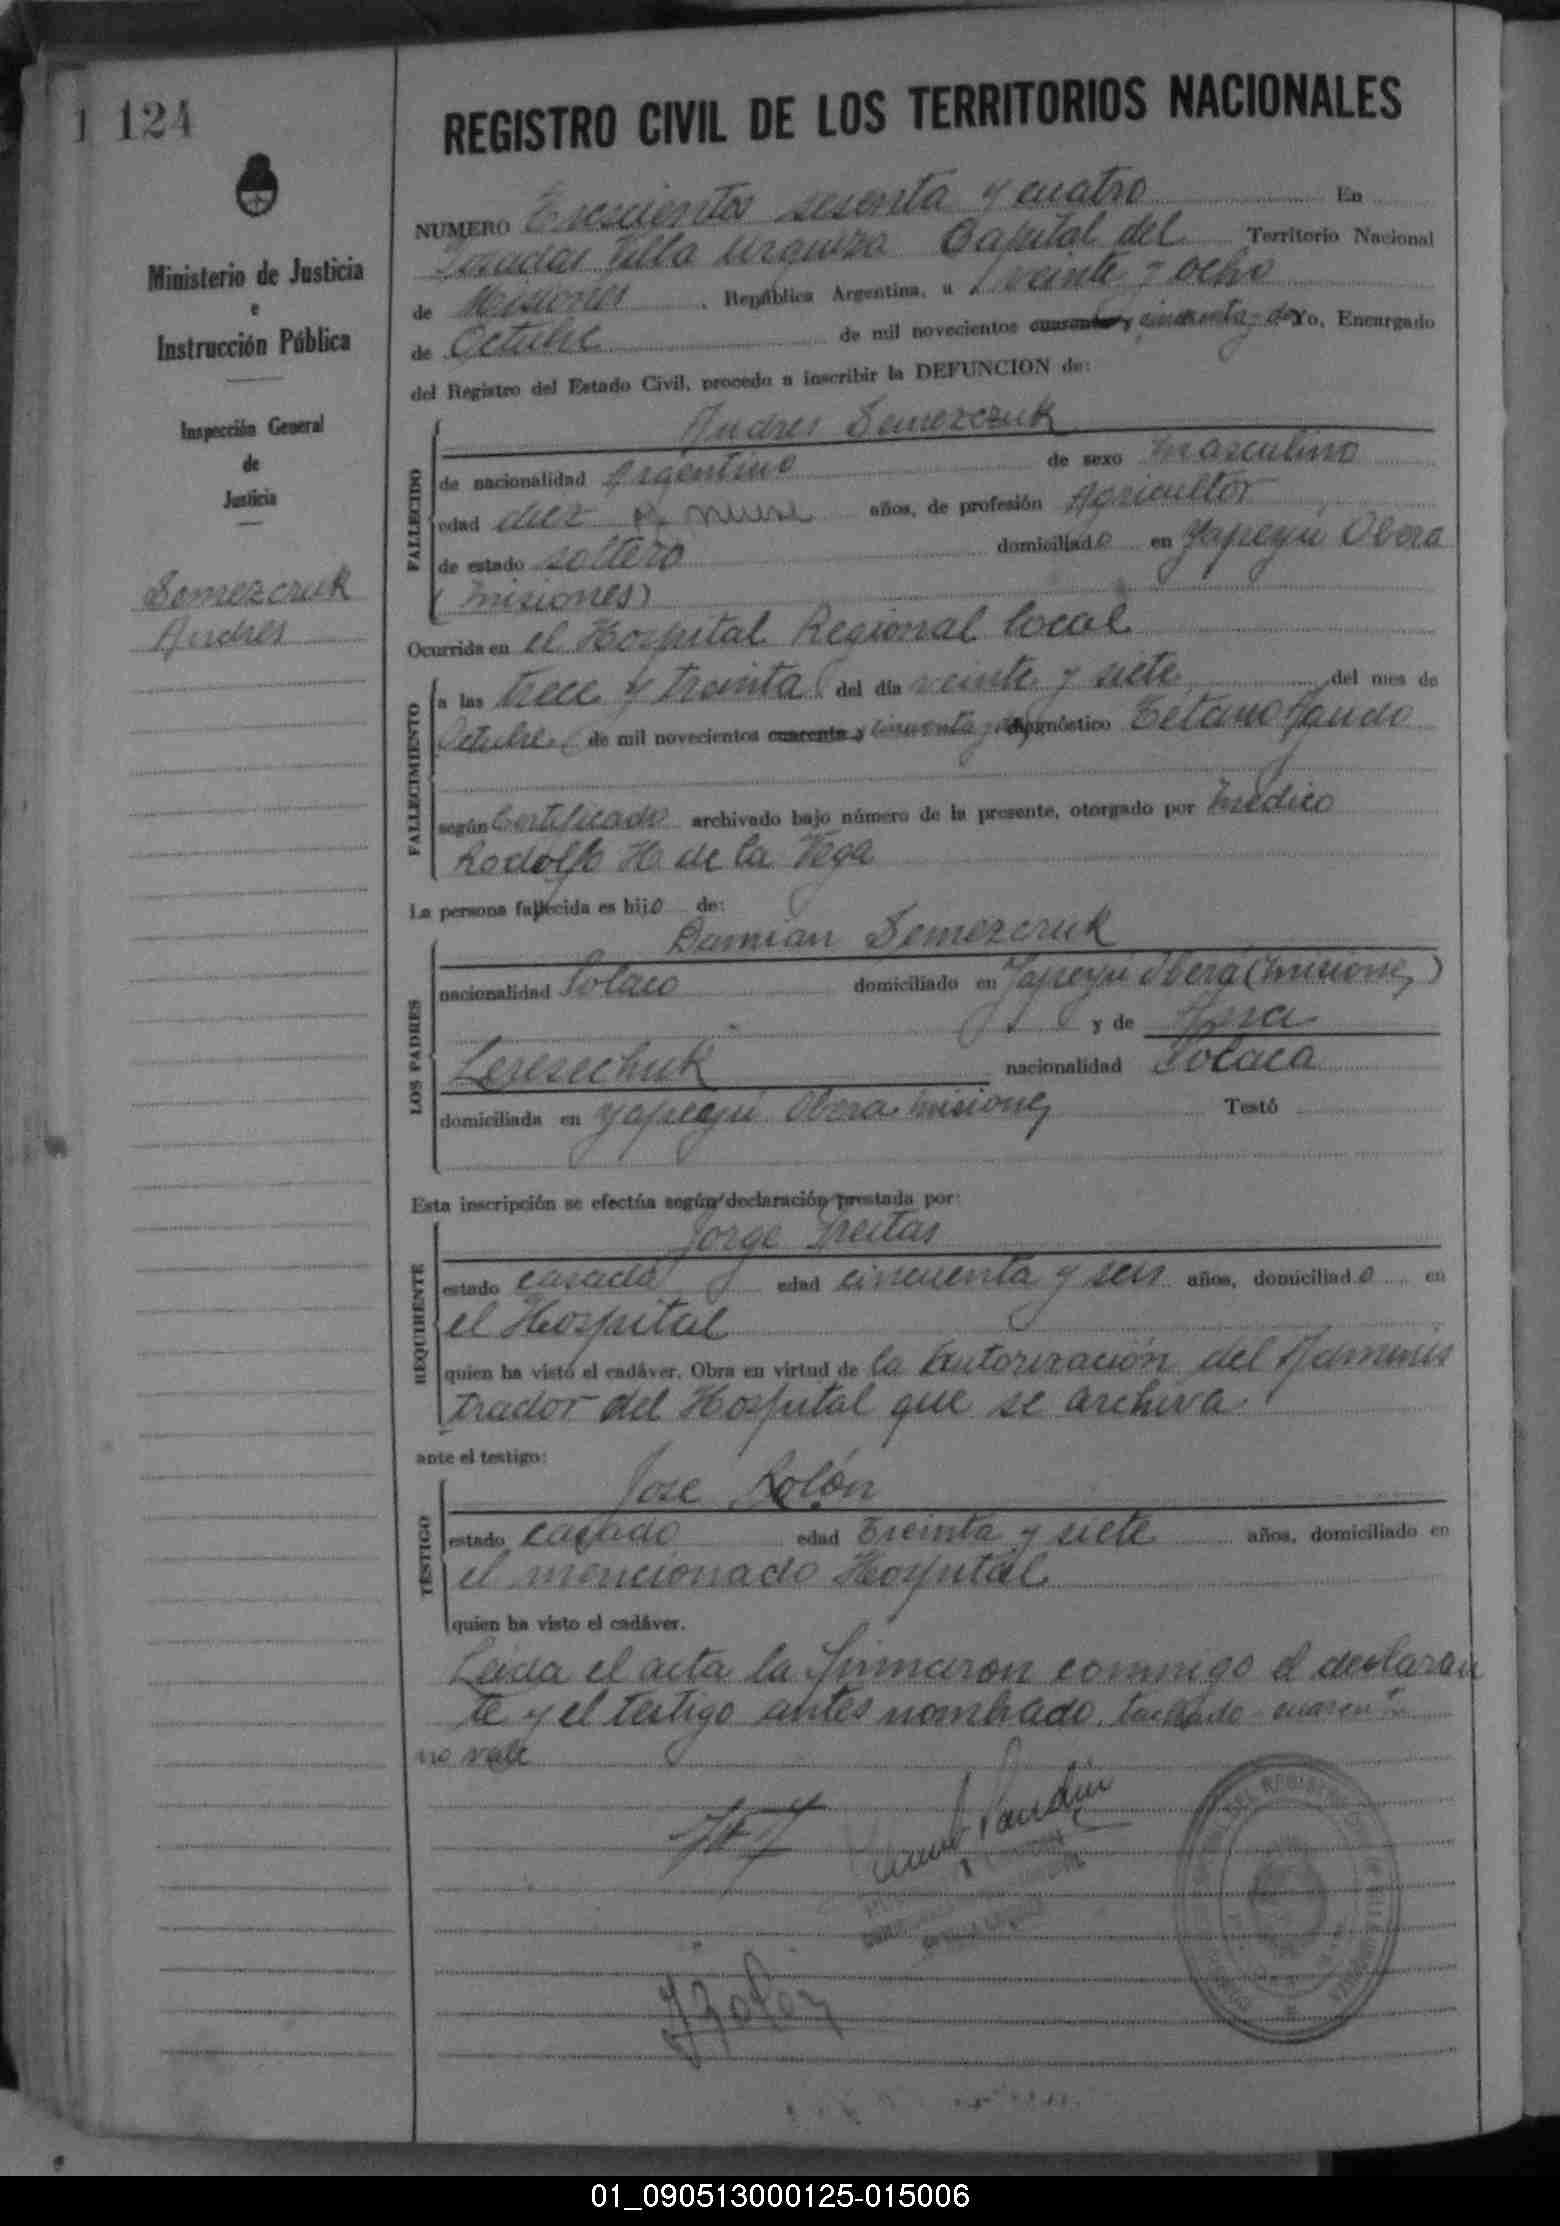 1 124
REGISTRO CIVIL DE LOS TERRITORIOS NACIONALES
Ministerio de Justicia
e
Instrucción Pública
Inspección General
de
Justicia
Semezczuk
Andres
NUMERO Trescientos sesenta y cuatro En
Posadas Villa Urquiza Capital del Territorio Nacional
de Misiones, República Argentina, a veinte y ocho
de Octubre de mil novecientos cuarenta y cincuenta y dos Yo, Encargado
del Registro del Estado Civil, procedo a inscribir la DEFUNCION de:
FALLECIDO
Andres Semezczuk
de nacionalidad Argentino de sexo masculino
edad diez y nueve años, de profesión Agricultor
de estado soltero domiciliado en Yapeyú Obera
(Misiones)
Ocurrida en el Hospital Regional local
FALLECIMIENTO
a las trece y treinta del día veinte y siete del mes de
Octubre de mil novecientos cuarenta y cincuenta y dos diagnóstico Tetano Agudo
según Certificado archivado bajo número de la presente, otorgado por medico
Rodolfo H. de la Vega
La persona fallecida es hijo de:
LOS PADRES
Damian Semezczuk
nacionalidad Polaco domiciliado en Yapeyú Obera (misiones)
y de Ana
nacionalidad Polaca
domiciliada en Yapeyú Obera misiones Testó
Esta inscripción se efectúa según declaración prestada por:
REQUIRENTE
Jorge Freitas
estado casado edad cincuenta y seis años, domiciliado en
el Hospital
quien ha visto el cadáver. Obra en virtud de la Autorización del Adminis
trador del Hospital que se archiva
ante el testigo:
TESTIGO
Jose Rolón
estado casado edad treinta y siete años, domiciliado en
el mencionado Hospital
quien ha visto el cadáver.
Leida el acta la firmaron conmigo el declaran
te y el testigo antes nombrado. tachado cuarenta
no vale
JRolón
01_090513000125-015006